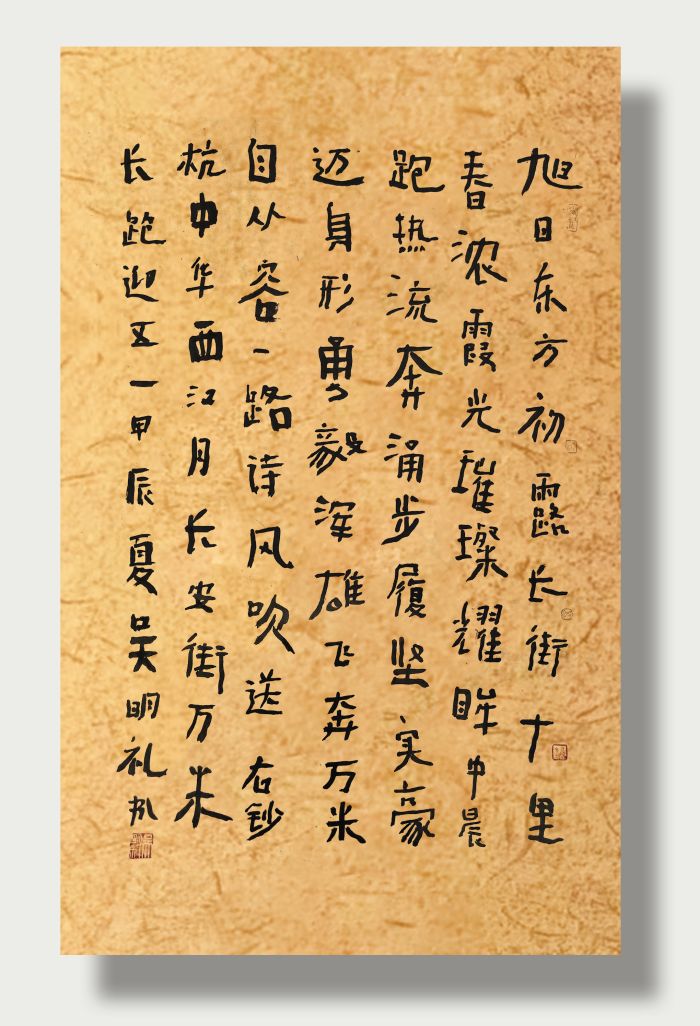 旭日东方初露长街十里
春浓霞光璀璨耀眸中晨
跑热流奔涌步履坚实豪
迈身形勇毅浑雄飞奔万米
自从容一路诗风吹送右钞
杭中华西江月长安街万米
长跑迎五一甲辰夏吴明礼